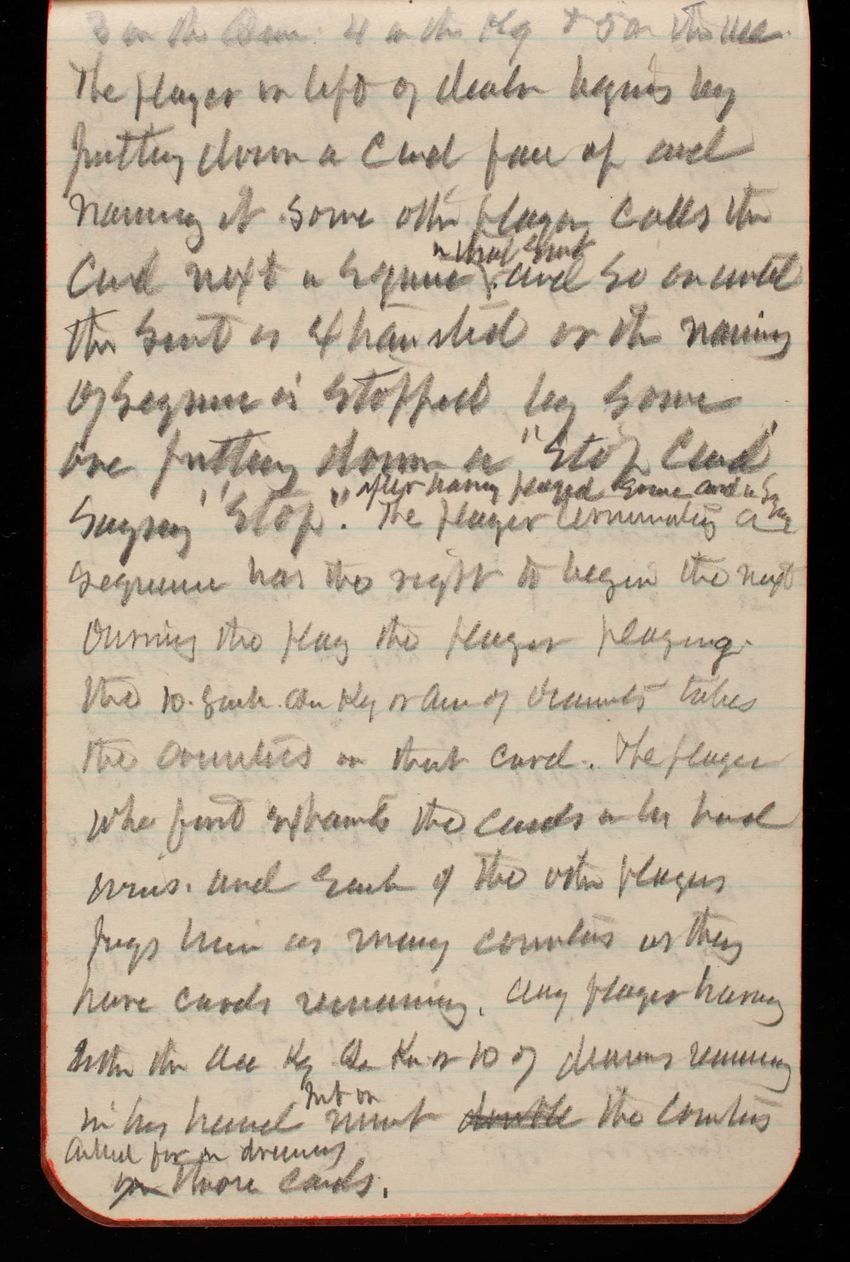 3 on the Queen 4 on the Kg & 5 on the Ace.
The player on left of dealer begins by
putting down a Card face up and
naming it. Some other player calls the
in that Suit
Card next in Sequence, and so on until
the Suit is Exhausted or the naming
of Sequence is Stopped by Some
one putting down a "Stop Card"
after having played Some card in Seq
Saying "Stop". The player terminating a
Sequence has the right to begin the next
During the play the player playing
the 10. Jack. Qn Kg or Ace of diamonds takes
the Counters on that card. The player
who first exhausts the cards in his hand
wins. and Each of the other players
pays him as many counters as they
have cards remaining. Any player having
either the Ace Kg Qn Kn or 10 of diamonds remaining
put on
in his hand must double the counters
called for in dressing
on those cards.